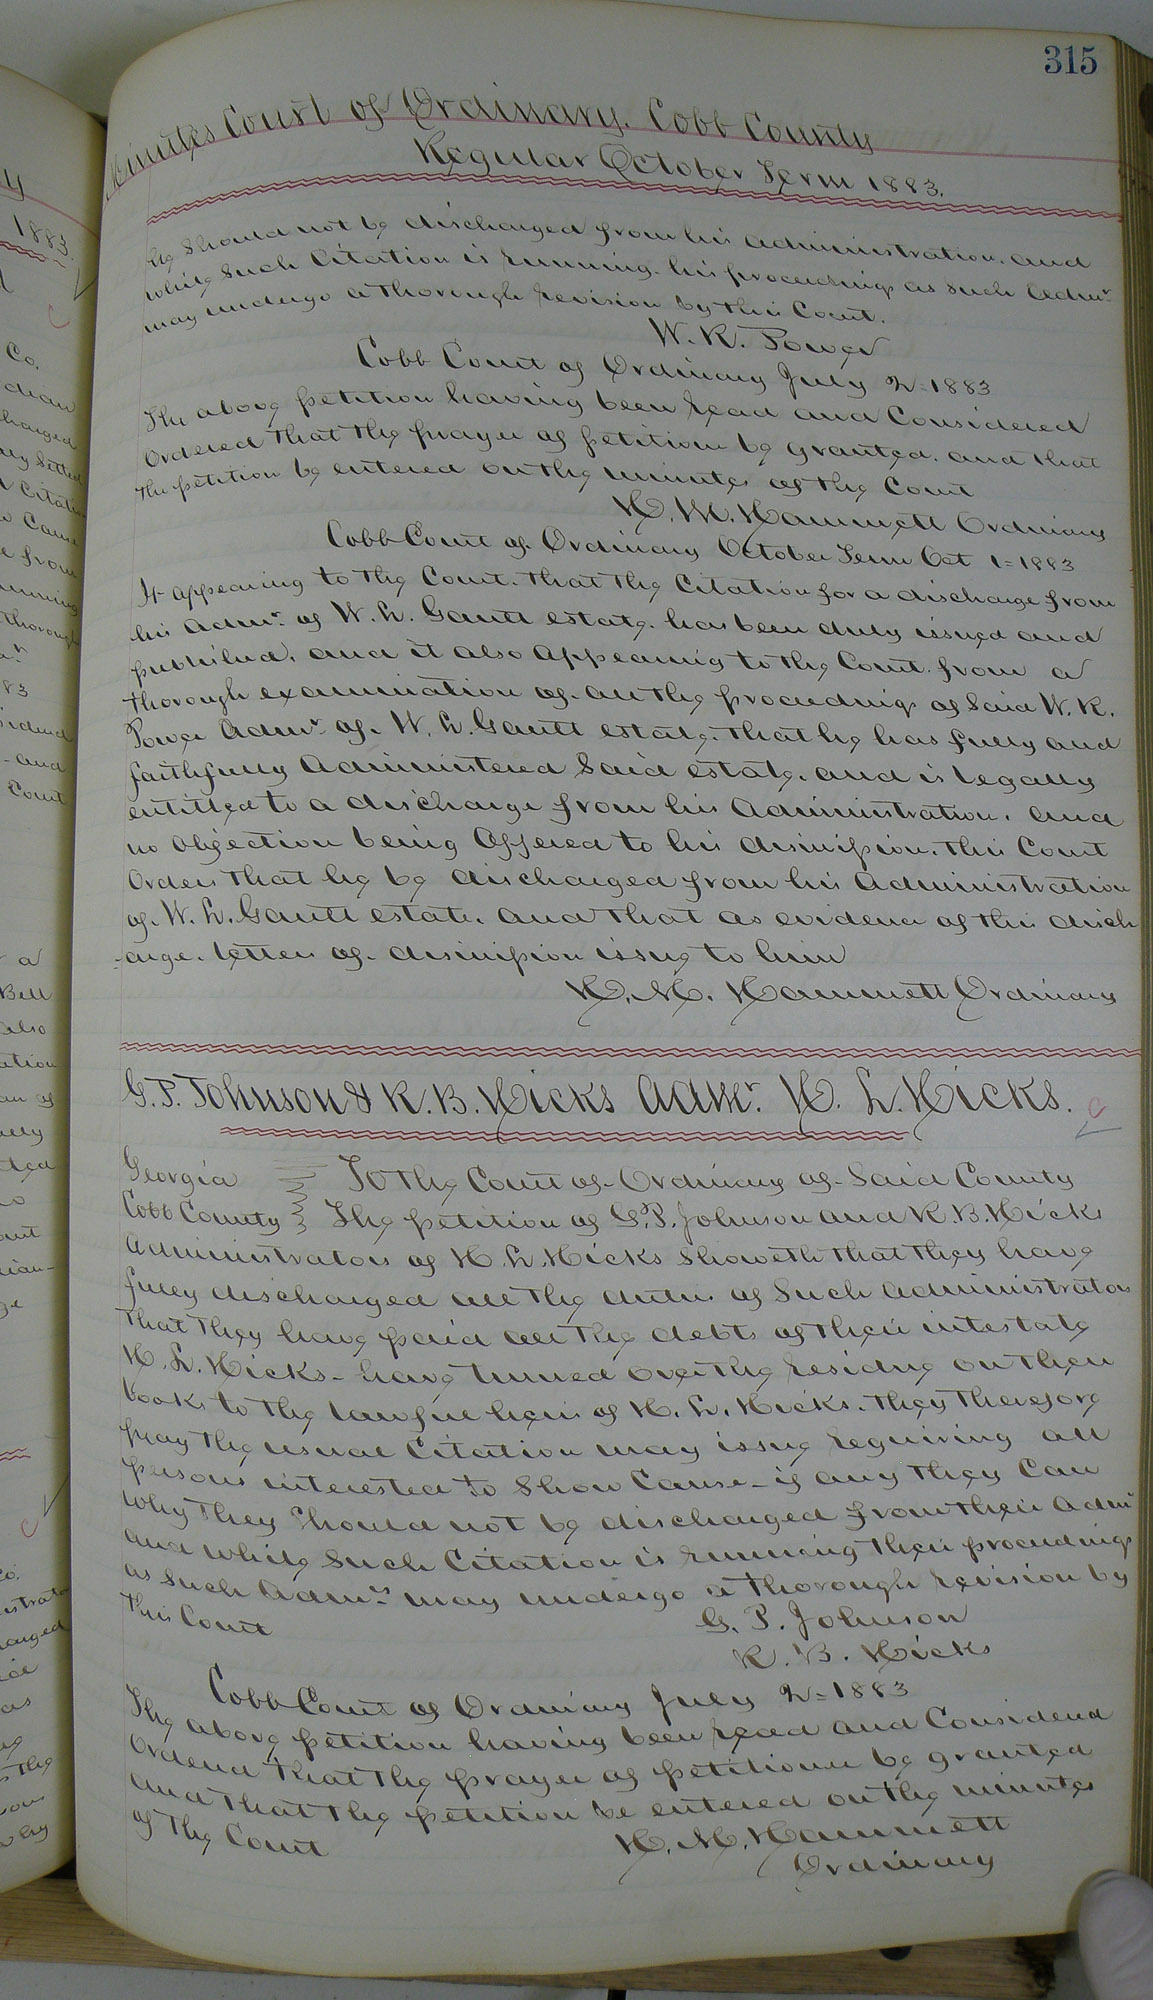 315
Minutes Court of Ordinary. Cobb County
Regular October Term 1883.
he should not be discharged from his administration. and
while such Citation is running. his proceedings as such Admr
may undergo a thorough revision by this Court.
W. R. Power
Cobb Court of Ordinary July 2-1883
The above petition having been read and Considered
Ordered that the prayer of petition be granted. and that
the petition be entered on the minutes of the Court
H. M. Hammett Ordinary
Cobb Court of Ordinary October Term Oct 1-1883
It appearing to the Court. that the Citation for a discharge from
his Admr. of W. L. Gantt estate. has been duly issued and
published. and it also appearing to the Court. from a
thorough examination of all the proceedings of said W. R.
Power Admr. of W. L. Gantt estate. that he has fully and
faithfully Administered said estate. and is legally
entitled to a discharge from his Administration. and
no objection being Offered to his dismission. this Court
Orders that he be discharged from his Administration
of W. L. Gantt estate. and that as evidence of this disch
-arge. letters of dismission issue to him
H. M. Hammett Ordinary
G. P. Johnson & R. B. Hicks Admr. H. L. Hicks.
Georgia To the Court of Ordinary of said County
Cobb County The petition of G. P. Johnson and R. B. Hicks
Administrators of H. L. Hicks showeth that they have
fully discharged all the duties of such administrators
that they have paid all the debts of their intestate
H. L. Hicks - have turned over the residue on their
books to the lawful heirs of H. L. Hicks. they therefore
pray the usual Citation may issue requiring all
persons interested to show Cause - if any they Can
why they should not be discharged from their Admr
and while such Citation is running their proceedings
as such Admrs may undergo a thorough revision by
this Court G. P. Johnson
R. B. Hicks
Cobb Court of Ordinary July 2-1883
The above petition having been read and Considered
Ordered that the prayer of petition be granted
and that the petition be entered on the minutes
of the Court H. M. Hammett
Ordinary